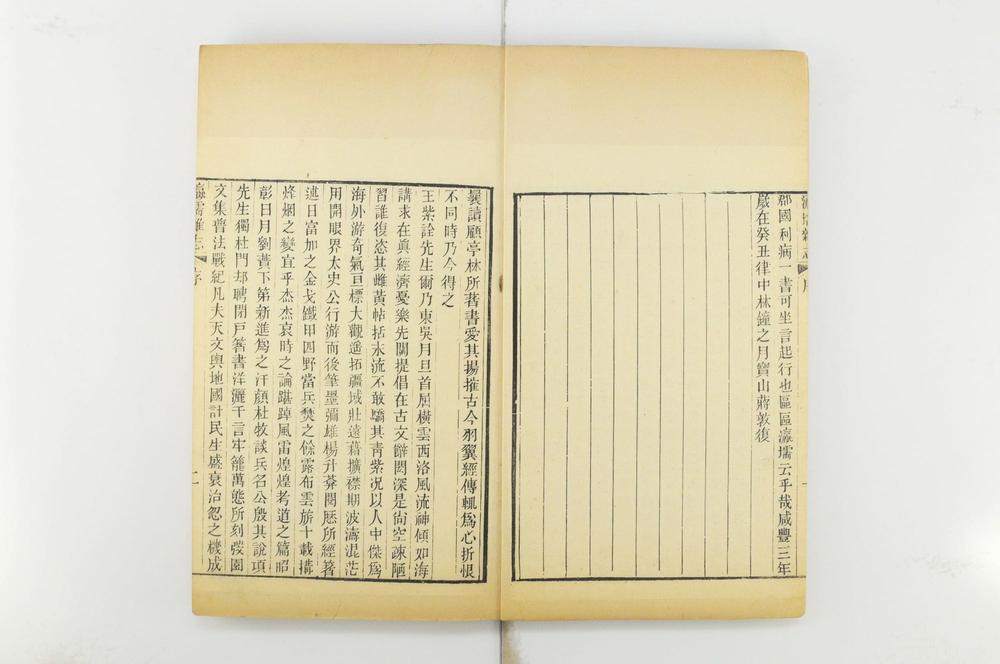 郡國利病一書可坐言起行也區區瀛壖云乎哉咸豐三年
歲在癸丑律中林鐘之月寶山蔣敦復
曩讀顧亭林所著書愛其揚搉古今羽翼經傳輒爲心折恨
不同時乃今得之
王紫詮先生爾乃東吳月旦首居橫雲西洛風流神傾如海
講求在眞經濟憂樂先關提倡在古文辭閎深是尙空疎陋
習誰復恣其雌黃帖括末流不敢驕其靑紫况以人中傑爲
海外游奇氣亘標大觀遥拓疆域壯遠藉擴襟期波濤混茫
用開眼界太史公行游而後筆墨彌雄楊升菴閱歷所經著
述日富加之金戈鐵甲四野當兵燹之餘露布雲旂十載搆
烽烟之變宜乎杰杰哀時之論踸踔風雷煌煌考道之篇昭
彰日月劉蕡下第新進爲之汗顔杜牧談兵名公殷其說項
先生獨杜門却聘閉戸箸書洋灑千言牢籠萬態所刻弢園
文集普法戰紀凡夫天文輿地國計民生盛衰治忽之機成
瀛壖雜志 序 二